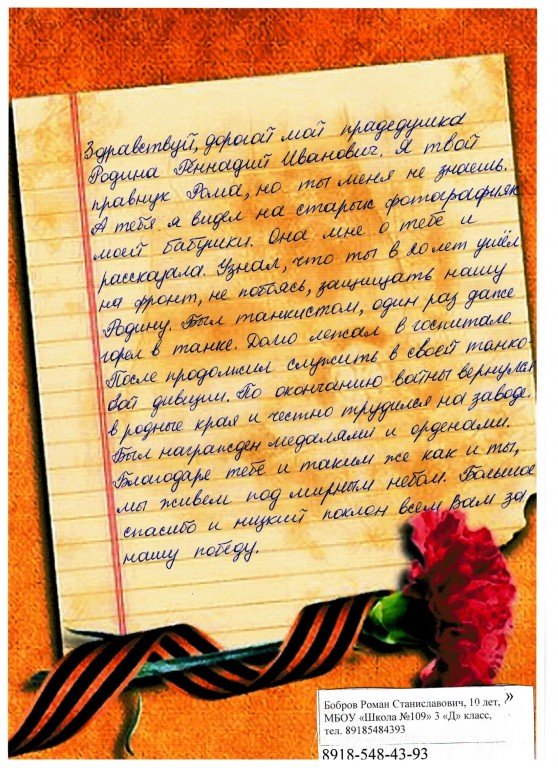 Здравствуй, дорогой мой прадедушка
Родина Геннадий Иванович. Я твой
правнук Рома, но ты меня не знаешь.
А тебя я видел на старых фотографиях
моей бабушки. Она мне о тебе и
рассказала. Узнал, что ты в 20 лет ушёл
на фронт, не побоясь, защищать нашу
Родину. Был танкистом, один раз даже
горел в танке. Долго лежал в госпитале.
После продолжил служить в своей танко-
вой дивизии. По окончанию войны вернулся
в родные края и честно трудился на заводе.
Был награжден медалями и орденами.
Благодаря тебе и таким же как и ты,
мы живем под мирным небом. Большое
спасибо и низкий поклон всем Вам за
нашу победу.
Бобров Роман Станиславович, 10 лет, »
МБОУ «Школа №109» 3 «Д» класс,
тел. 89185484393
8918-548-43-93